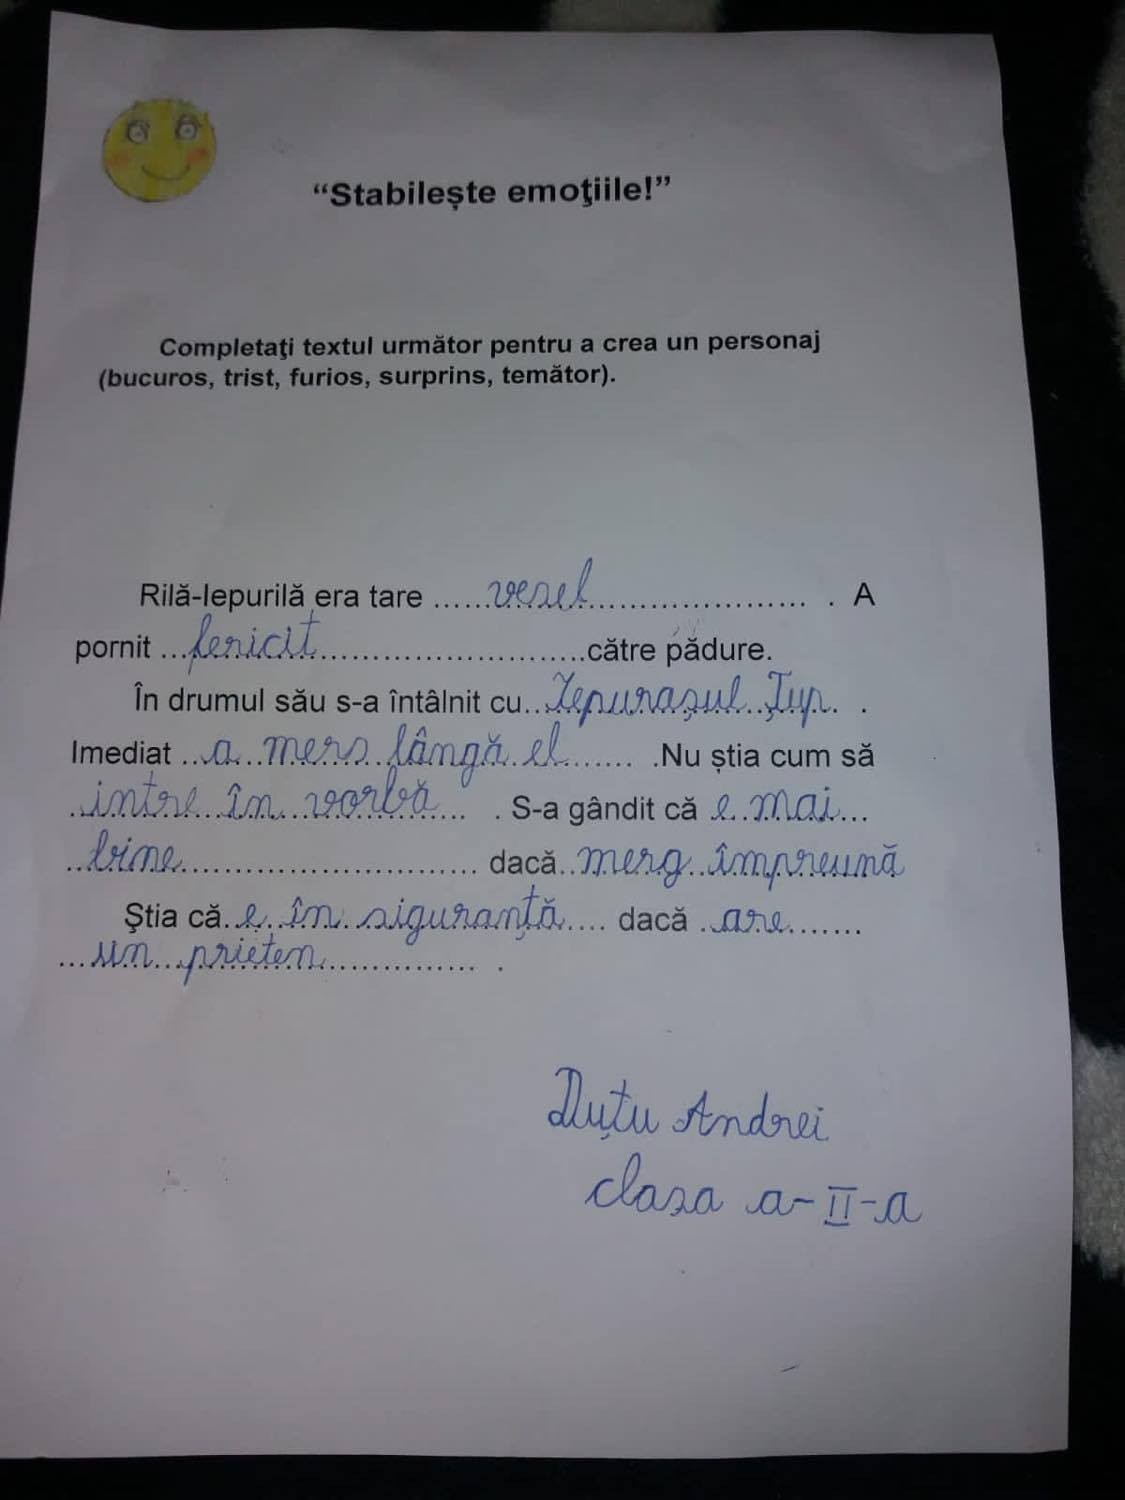 “Stabilește emoţiile!”
Completaţi textul următor pentru a crea un personaj
(bucuros, trist, furios, surprins, temător).
Rilă-Iepurilă era tare ......vesel...................... . A
pornit ...fericit...........................către pădure.
În drumul său s-a întâlnit cu..Iepurașul Țup. .
Imediat ..a mers lângă el....... .Nu știa cum să
.intre în vorbă... . S-a gândit că e mai...
..bine............................. dacă..merg împreună
Ştia că.e în siguranță.... dacă .are.......
...un prieten............... .
Duțu Andrei
clasa a-II-a